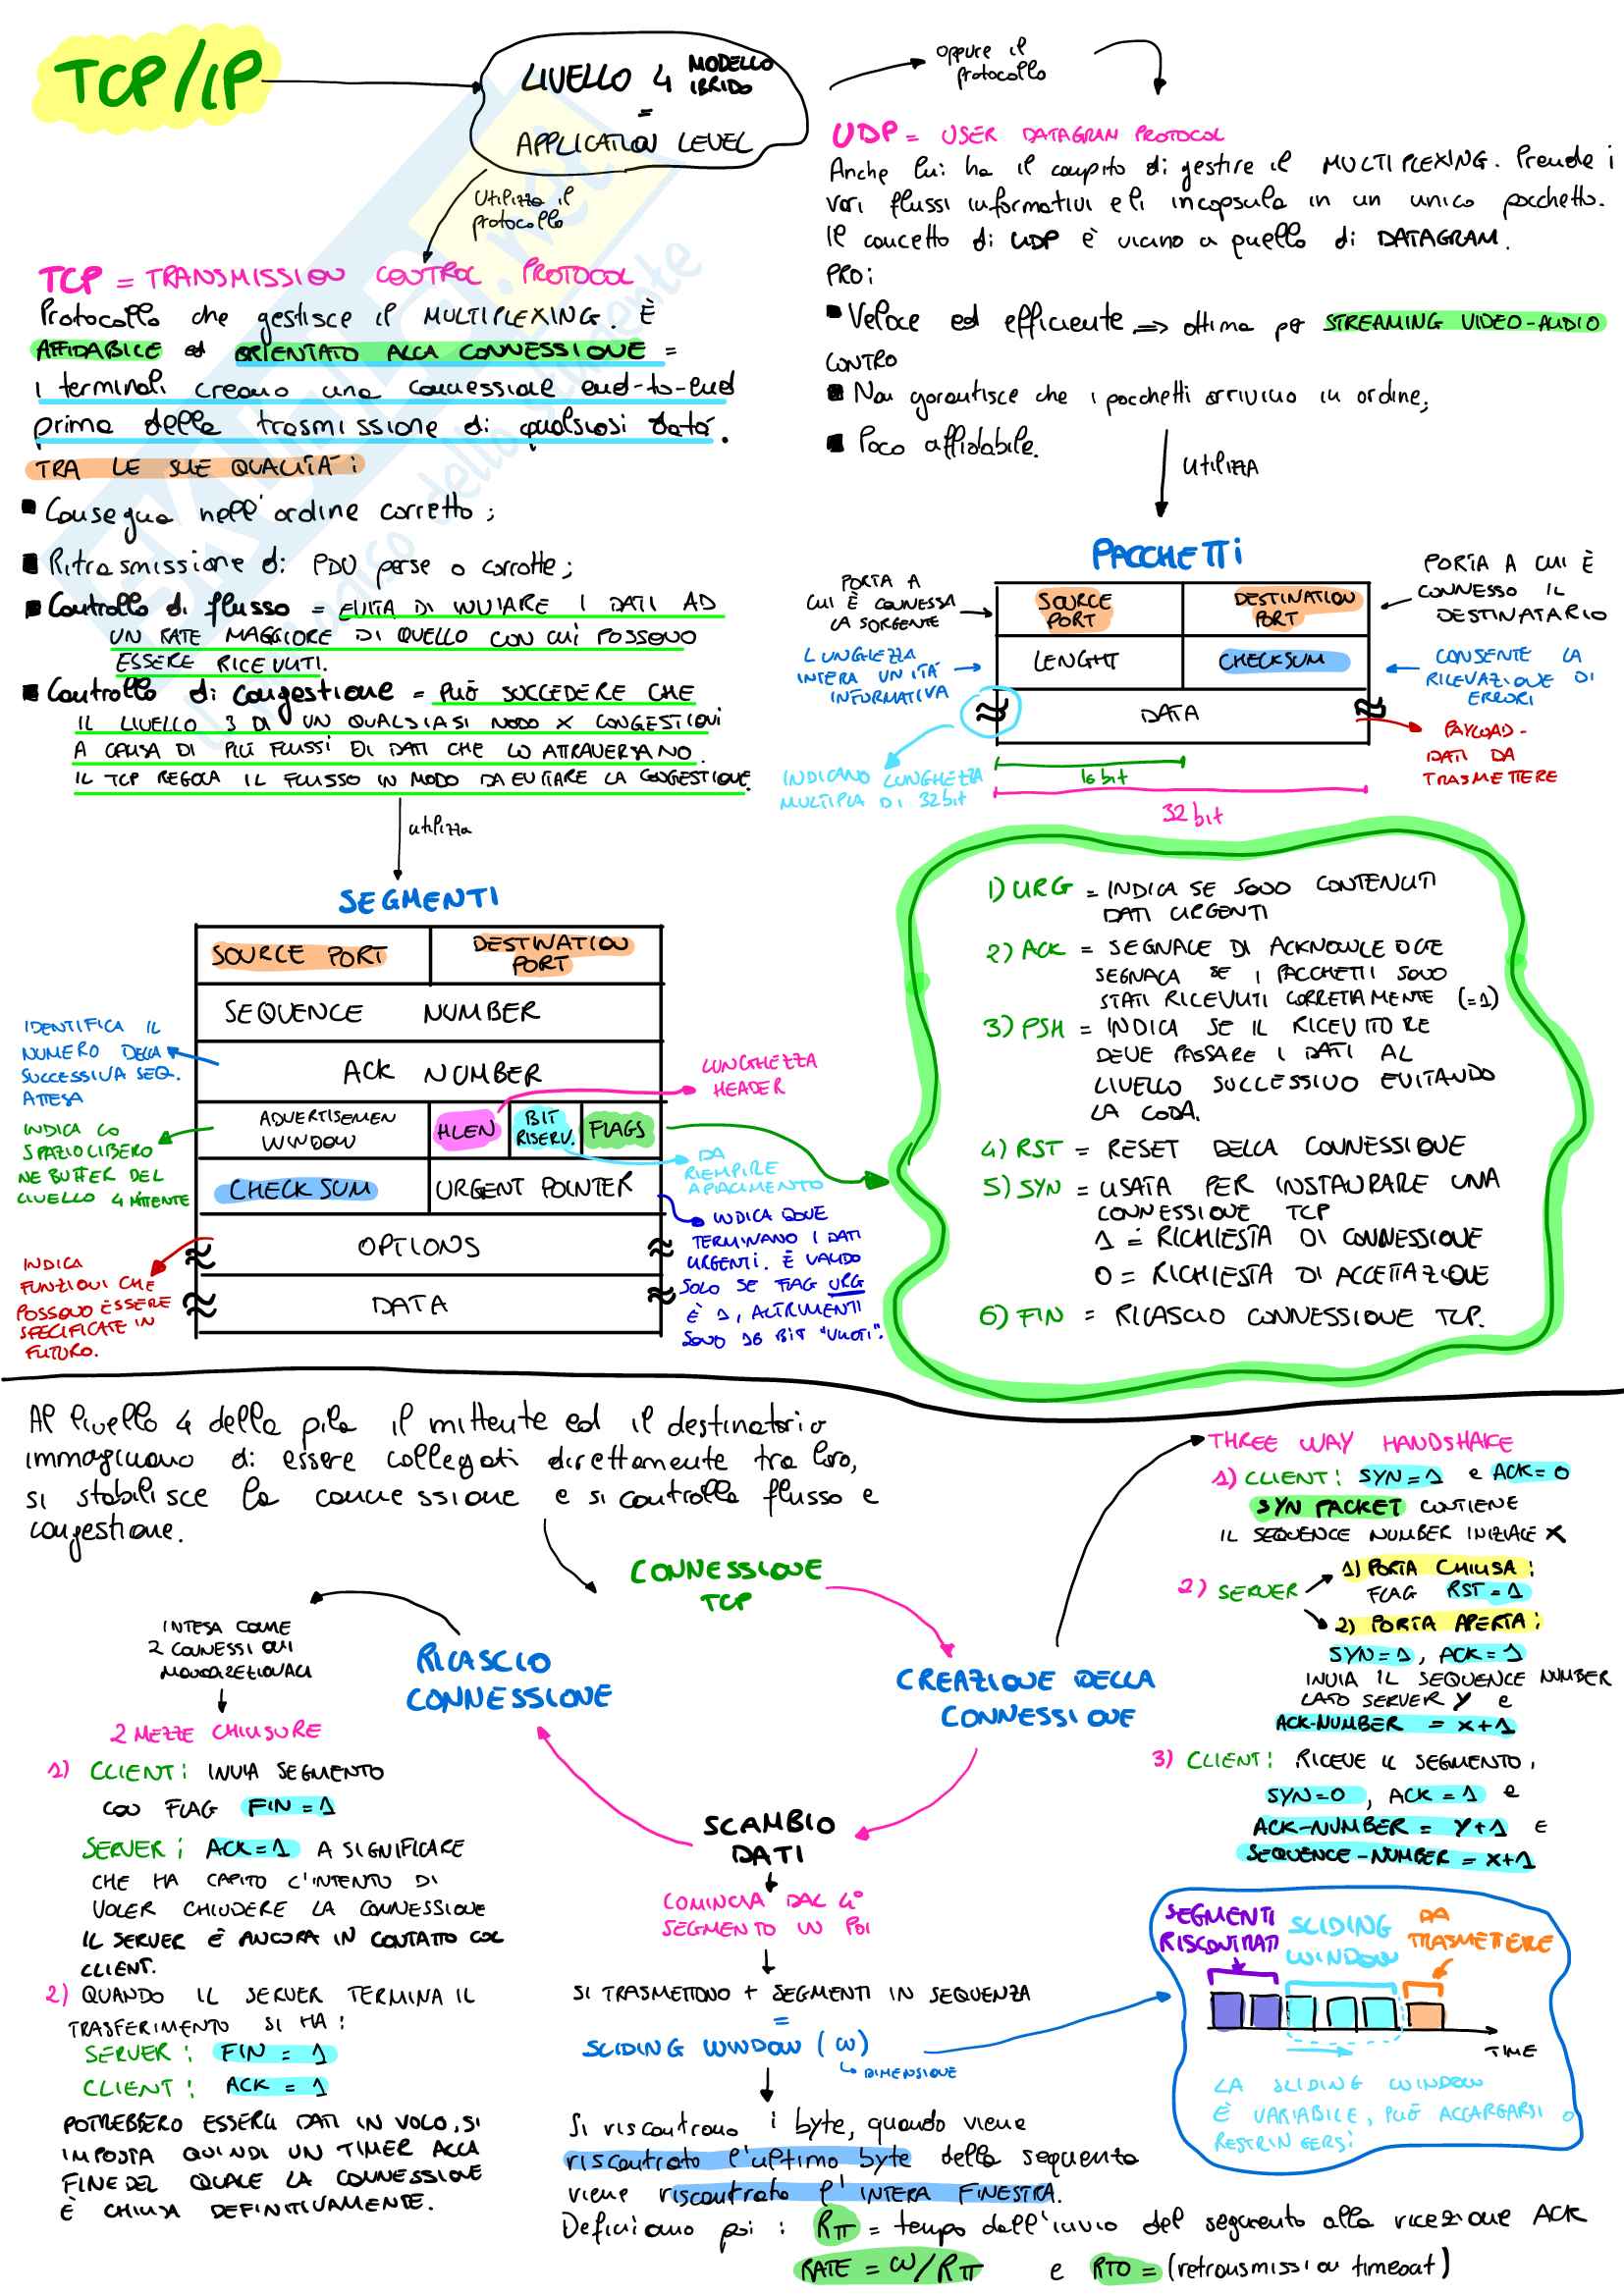 TCP/IP
LIVELLO 4 MODELLO IBRIDO
=
APPLICATION LEVEL
Utilizza il
protocollo
TCP = TRANSMISSION CONTROL PROTOCOL
Protocollo che gestisce il MULTIPLEXING. È
AFFIDABILE ed ORIENTATO ALLA CONNESSIONE =
i terminali creano una connessione end-to-end
prima della trasmissione di qualsiasi data.
TRA LE SUE QUALITÀ:
Consegna nell'ordine corretto;
Ritrasmissione di PDU perse o corrotte;
Controllo di flusso = EVITA DI INVIARE I DATI AD
UN RATE MAGGIORE DI QUELLO CON CUI POSSONO
ESSERE RICEVUTI.
Controllo di congestione = PUÒ SUCCEDERE CHE
IL LIVELLO 3 DI UN QUALSIASI NODO X CONGESTIONI
A CAUSA DI PIÙ FLUSSI DI DATI CHE LO ATTRAVERSANO.
IL TCP REGOLA IL FLUSSO IN MODO DA EVITARE LA CONGESTIONE.
utilizza
SEGMENTI
SOURCE PORT
DESTINATION PORT
SEQUENCE NUMBER
ACK NUMBER
ADVERTISEMEN WINDOW
HLEN
BIT RISERV.
FLAGS
CHECKSUM
URGENT POINTER
OPTIONS
DATA
IDENTIFICA IL
NUMERO DELLA
SUCCESSIVA SEQ.
ATTESA
INDICA LO
SPAZIO LIBERO
NE BUFFER DEL
LIVELLO 4 MITTENTE
INDICA
FUNZIONI CHE
POSSONO ESSERE
SPECIFICATE IN
FUTURO.
LUNGHEZZA
HEADER
DA
RIEMPIRE
A PIACIMENTO
INDICA DOVE
TERMINANO I DATI
URGENTI. È VALIDO
SOLO SE FLAG URG
È 1, ALTRIMENTI
SONO 16 BIT "VUOTI".
oppure il
protocollo
UDP = USER DATAGRAM PROTOCOL
Anche lui ha il compito di gestire il MULTIPLEXING. Prende i
vari flussi informativi e li incapsula in un unico pacchetto.
Il concetto di UDP è vicino a quello di DATAGRAM.
PRO:
Veloce ed efficiente => ottima per STREAMING VIDEO-AUDIO
CONTRO
Non garantisce che i pacchetti arrivino in ordine;
Poco affidabile.
UTILIZZA
PACCHETTI
SOURCE PORT
DESTINATION PORT
LENGHT
CHECKSUM
DATA
PORTA A
CUI È CONNESSA
LA SORGENTE
LUNGHEZZA
INTERA UNITÀ
INFORMATIVA
INDICANO LUNGHEZZA
MULTIPLA DI 32bit
PORTA A CUI È
CONNESSO IL
DESTINATARIO
CONSENTE LA
RILEVAZIONE DI
ERRORI
PAYLOAD-
DATI DA
TRASMETTERE
16 bit
32 bit
1) URG = INDICA SE SONO CONTENUTI
DATI URGENTI
2) ACK = SEGNALE DI ACKNOWLEDGE
SEGNALA SE I PACCHETTI SONO
STATI RICEVUTI CORRETTAMENTE (=1)
3) PSH = INDICA SE IL RICEVITORE
DEVE PASSARE I DATI AL
LIVELLO SUCCESSIVO EVITANDO
LA CODA.
4) RST = RESET DELLA CONNESSIONE
5) SYN = USATA PER INSTAURARE UNA
CONNESSIONE TCP
1 = RICHIESTA DI CONNESSIONE
0 = RICHIESTA DI ACCETTAZIONE
6) FIN = RILASCIO CONNESSIONE TCP.
Al livello 4 della pila il mittente ed il destinatario
immaginano di essere collegati direttamente tra loro,
si stabilisce la connessione e si controlla flusso e
congestione.
CONNESSIONE
TCP
CREAZIONE DELLA
CONNESSIONE
THREE WAY HANDSHAKE
1) CLIENT: SYN=1 e ACK=0
SYN PACKET CONTIENE
IL SEQUENCE NUMBER INIZIALE X
2) SERVER
1) PORTA CHIUSA:
FLAG RST=1
2) PORTA APERTA:
SYN=1, ACK=1
INVIA IL SEQUENCE NUMBER
LATO SERVER Y e
ACK-NUMBER = X+1
3) CLIENT: RICEVE IL SEGMENTO,
SYN=0, ACK=1 e
ACK-NUMBER = Y+1 E
SEQUENCE-NUMBER = X+1
RILASCIO
CONNESSIONE
INTESA COME
2 CONNESSIONI
MONODIREZIONALI
2 MEZZE CHIUSURE
1) CLIENT: INVIA SEGMENTO
CON FLAG FIN=1
SERVER: ACK=1 A SIGNIFICARE
CHE HA CAPITO L'INTENTO DI
VOLER CHIUDERE LA CONNESSIONE
IL SERVER È ANCORA IN CONTATTO COL
CLIENT.
2) QUANDO IL SERVER TERMINA IL
TRASFERIMENTO SI HA:
SERVER: FIN = 1
CLIENT: ACK = 1
POTREBBERO ESSERCI DATI IN VOLO, SI
IMPOSTA QUINDI UN TIMER ALLA
FINE DEL QUALE LA CONNESSIONE
È CHIUSA DEFINITIVAMENTE.
SCAMBIO
DATI
COMINCIA DAL 4°
SEGMENTO IN POI
SI TRASMETTONO + SEGMENTI IN SEQUENZA
=
SLIDING WINDOW (W)
DIMENSIONE
Si riscontrano i byte, quando viene
riscontrato l'ultimo byte della sequenza
viene riscontrata l'INTERA FINESTRA.
Definiamo poi: RTT = tempo dall'invio del segmento alla ricezione ACK
RATE = W/RTT e RTO = (retrousmission timeout)
SEGMENTI
RISCONTRATI
SLIDING
WINDOW
DA
TRASMETTERE
TIME
LA SLIDING WINDOW
È VARIABILE, PUÒ ALLARGARSI O
RESTRINGERSI